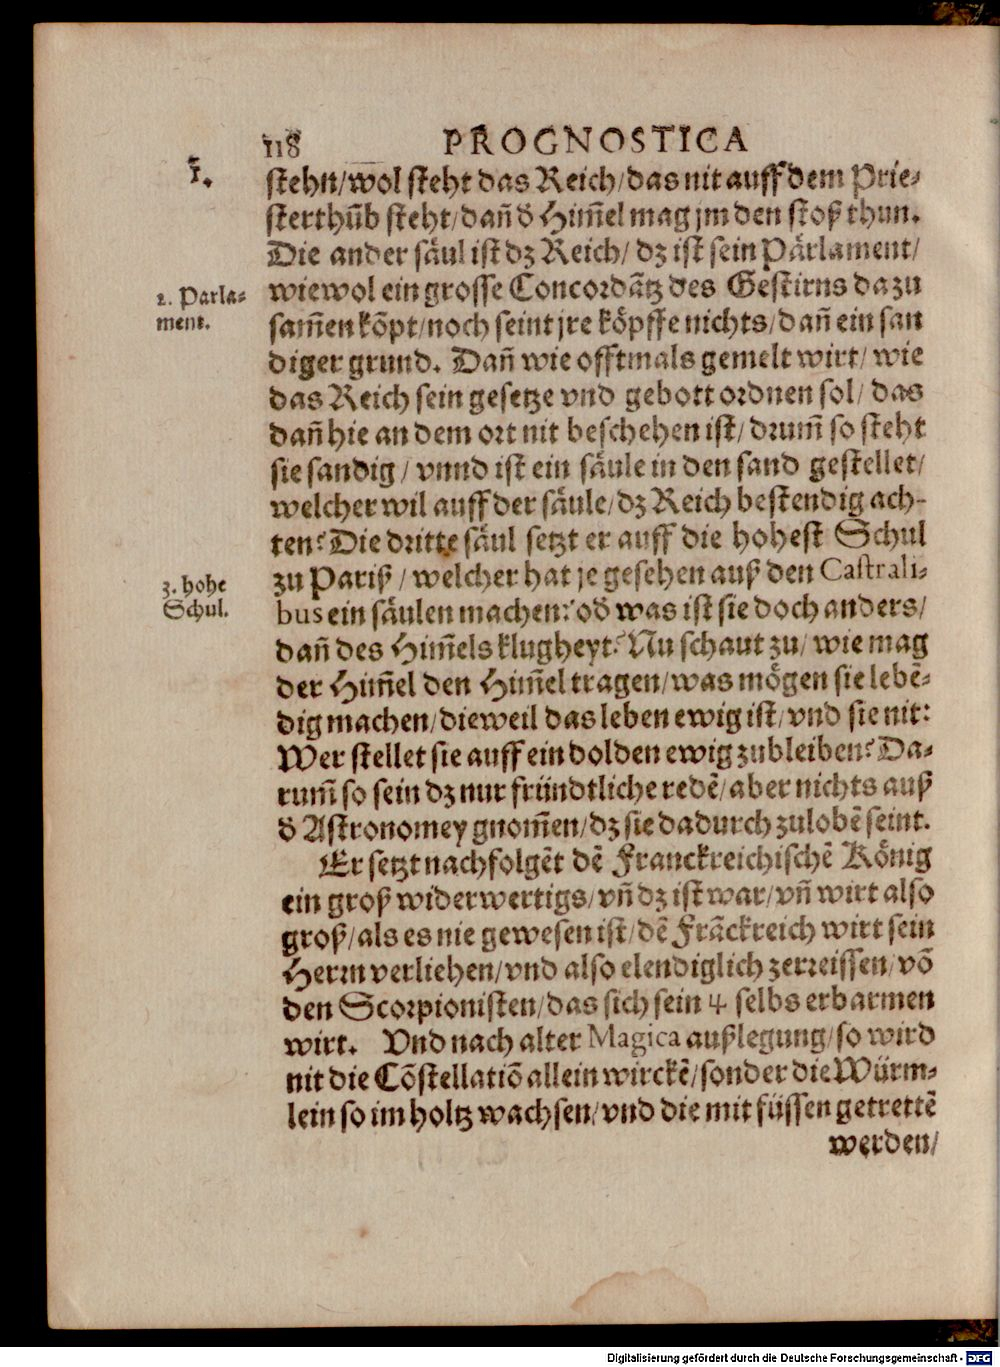 118 PROGNOSTICA
1.
stehn/wol steht das Reich/das nit auff dem Prie-
sterthũb steht/dañ d̕ Him̃el mag jm den stoß thun.
Die ander säul ist dz Reich/ dz ist sein Pärlament/
2. Parla-
ment.
wiewol ein grosse Concordãtz des Gestirns da zu
sam̃en kõpt/noch seint jre köpffe nichts/dañ ein san
diger grund. Dañ wie offtmals gemelt wirt/ wie
das Reich sein gesetze vnd gebott ordnen sol/ das
dañ hie an dem ort nit beschehen ist/ drum̃ so steht
sie sandig / vnnd ist ein säule in den sand gestellet/
welcher wil auff der säule/dz Reich bestendig ach-
ten? Die dritte säul setzt er auff die hohest Schul
3. hohe
Schul.
zu Pariß / welcher hat je gesehen auß den Castrali-
bus ein säulen machen? od̕ was ist sie doch anders/
dañ des Him̃els klugheyt? Nu schaut zu/ wie mag
der Him̃el den Him̃el tragen/was mögen sie lebẽ-
dig machen/dieweil das leben ewig ist/vnd sie nit:
Wer stellet sie auff ein dolden ewig zubleiben? Da-
rum̃ so sein dz nur fründtliche redẽ/aber nichts auß
d̕ Astronomey gnom̃en/dz sie dadurch zulobẽ seint.
Er setzt nachfolgẽt dẽ Franckreichischẽ König
ein groß widerwertigs/vñ dz ist war/vñ wirt also
groß/als es nie gewesen ist/dẽ Frãckreich wirt sein
Herrn verliehen/vnd also elendiglich zerreissen/võ
den Scorpionisten/das sich sein ♃ selbs erbarmen
wirt. Vnd nach alter Magica außlegung/so wird
nit die Cõstellatiõ allein wirckẽ/sonder die Würm-
lein so im holtz wachsen/vnd die mit füssen getrettẽ
werden/
Digitalisierung gefördert durch die Deutsche Forschungsgemeinschaft - DFG